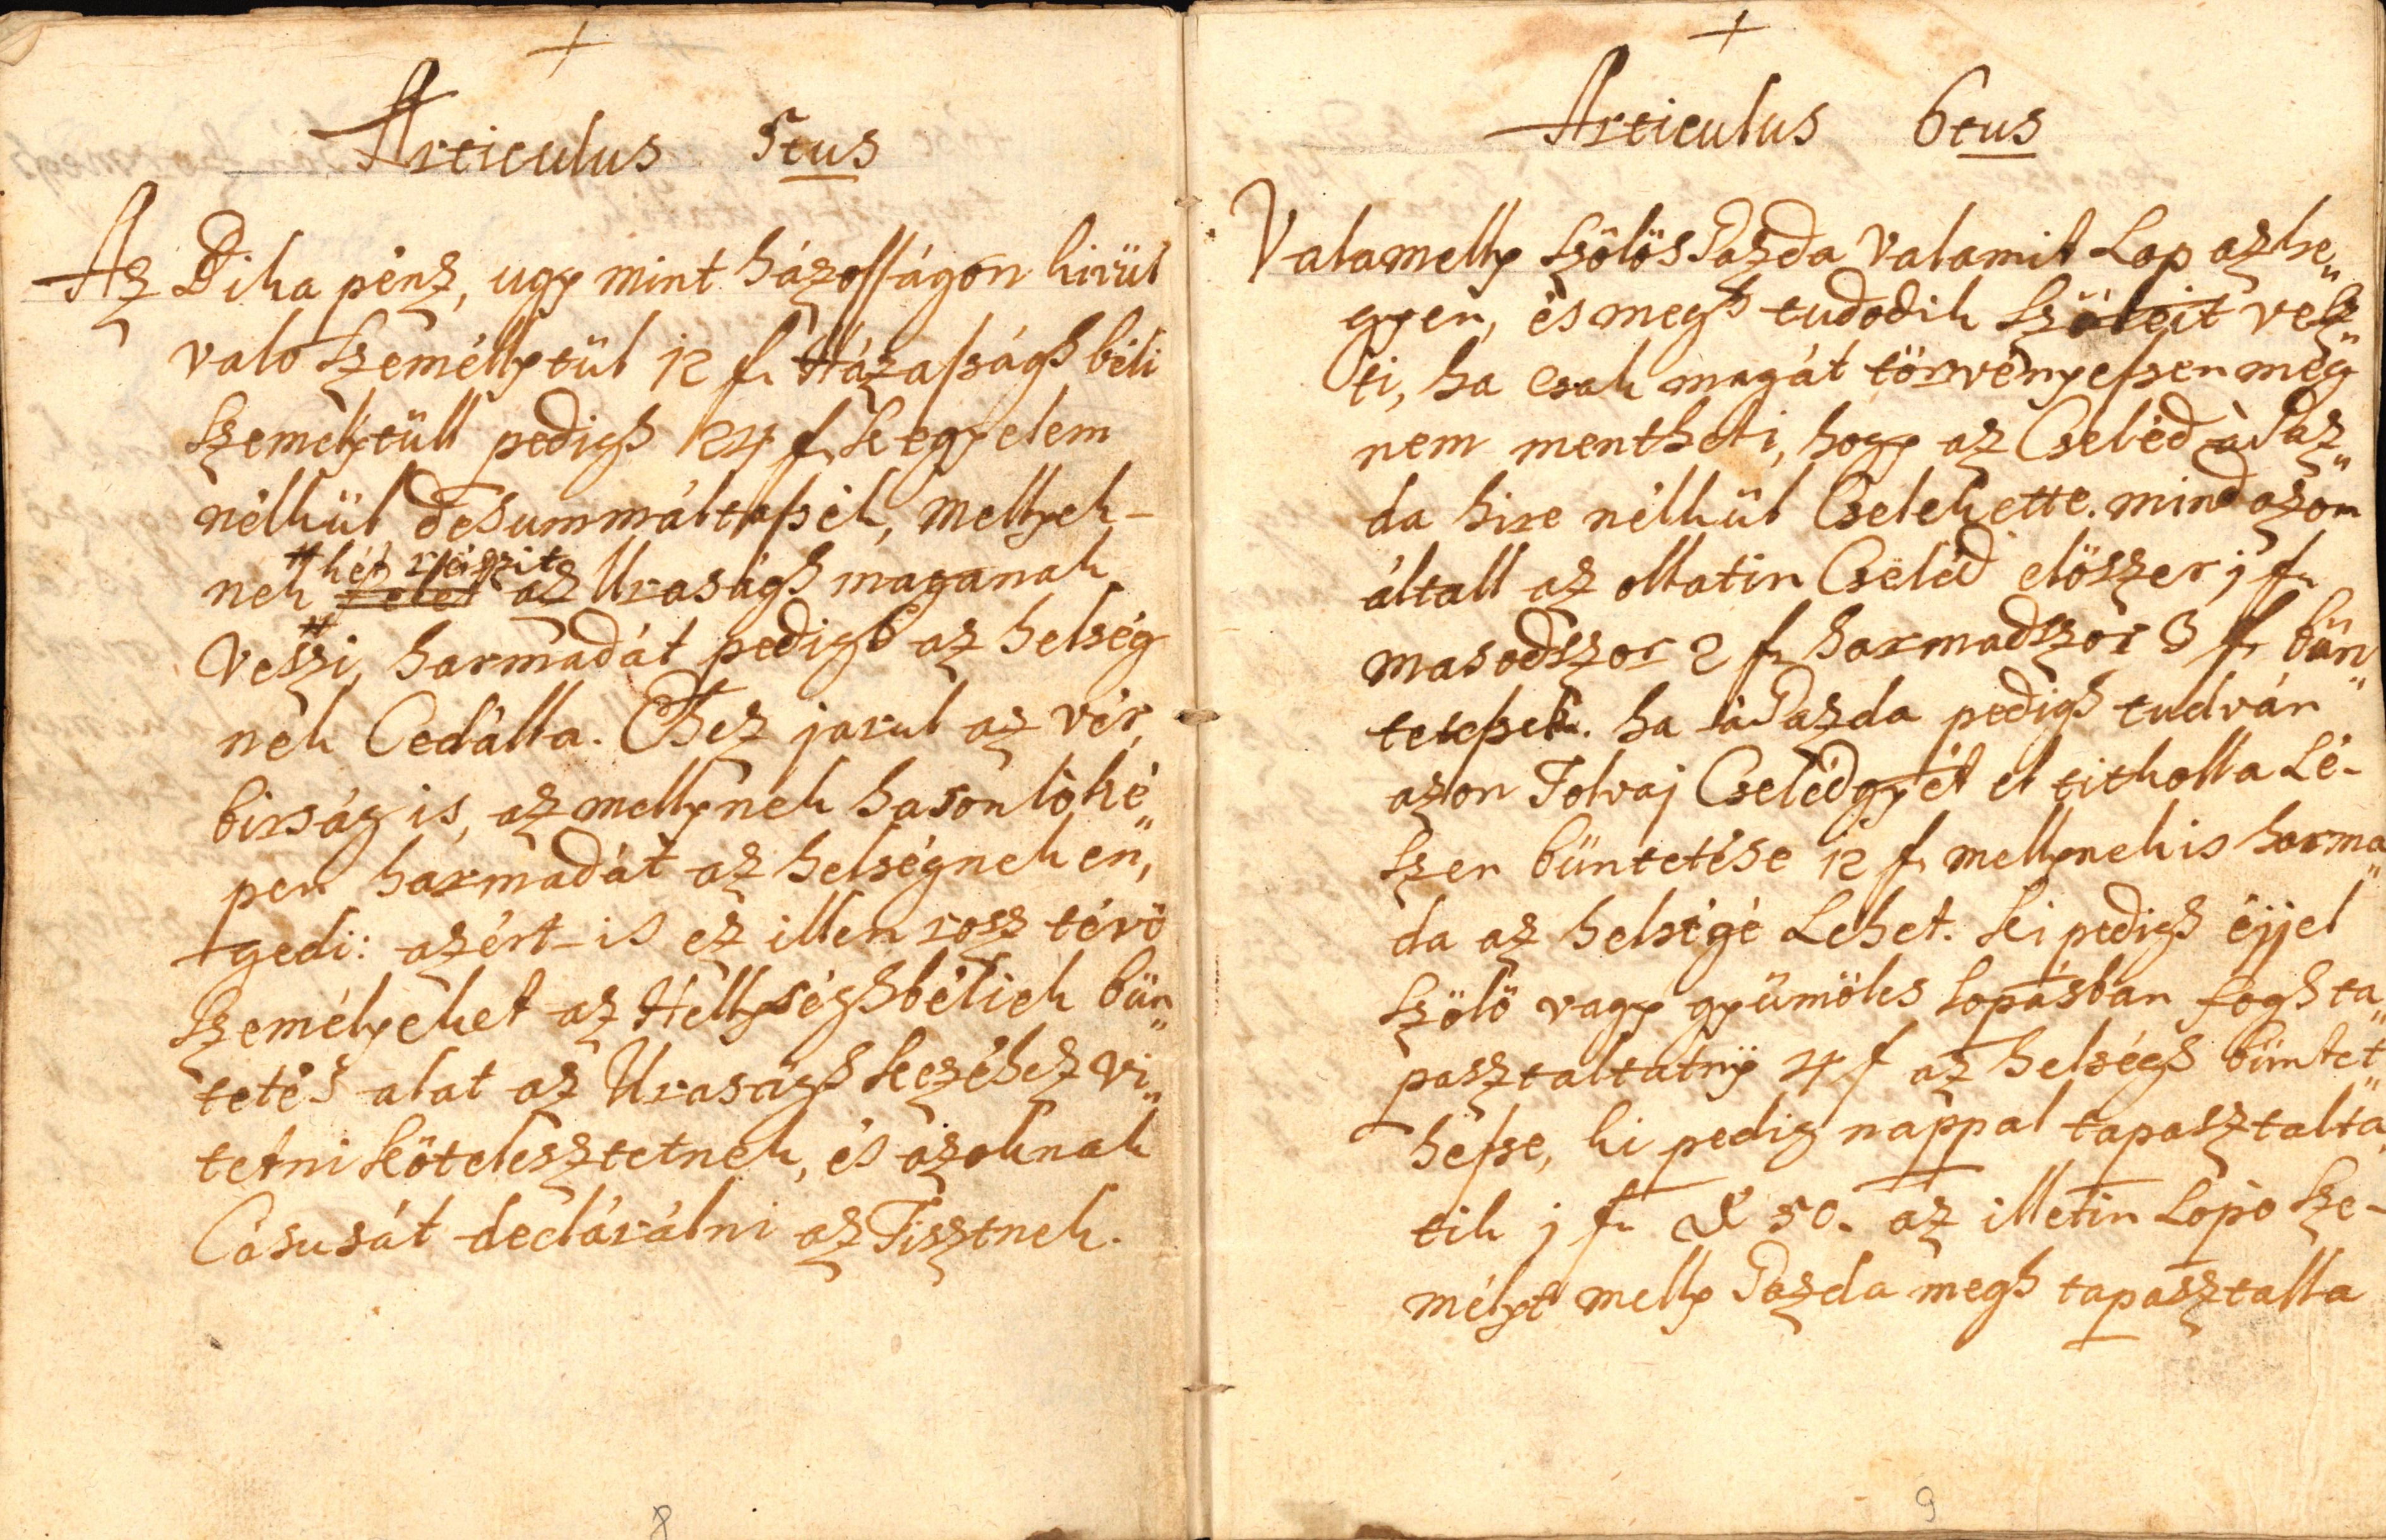 Articulus 5tus
Az Dika pénz, ugy mint házosságon kivül
valo személlytül 12 f. Házasságh béli
személytüll pedigh 24 f. kegyelem
nélkül desummáltassék, mellyek-
nek # két részit az Uraságh maganak
veszi, # harmadát pedigh az helség
nek Cedálta. Ehez jarul az vér
birság is, az mellynek hasonlò ké„
pen harmadát az helségnek en„
gedi: azért-is ez illen rosz tévö
személyeket az Hellységhbéliek bün„
tetés alat az Uraságh kezéhez vi„
tetni kötelesztetnek, és azoknak
Casusát declárálni az Tisztnek.
8
Articulus 6tus
Valamelly szölös Gazda valamit Lop az he„
gyen, és megh tudodik szöleit vesz„
ti, ha csak magát törvényessen meg
nem mentheti, hogy az Cseléd à Gaz„
da hire nélkül Cselekette. mind azon
általl az ollatin Cseléd elöszer j f.
masodszor 2 f. harmadszor 3 f. bün„
tetessék. ha à Gazda pedigh tudván
azon Tolvaj Cselédgyét el titkolta Lé-
szen büntetése 12 f. mellynek is harma„
da az helségé Lehet. ki pedigh éjjel
szölö vagy gyümölcs lopásban fogh ta„
pasztaltatny 4 f az helségh büntet„
hesse, ki pedig nappal tapasztalta„
tik j f. d 50. az illetin Lopo sze-
mélyt melly Gazda megh tapasztalta
9